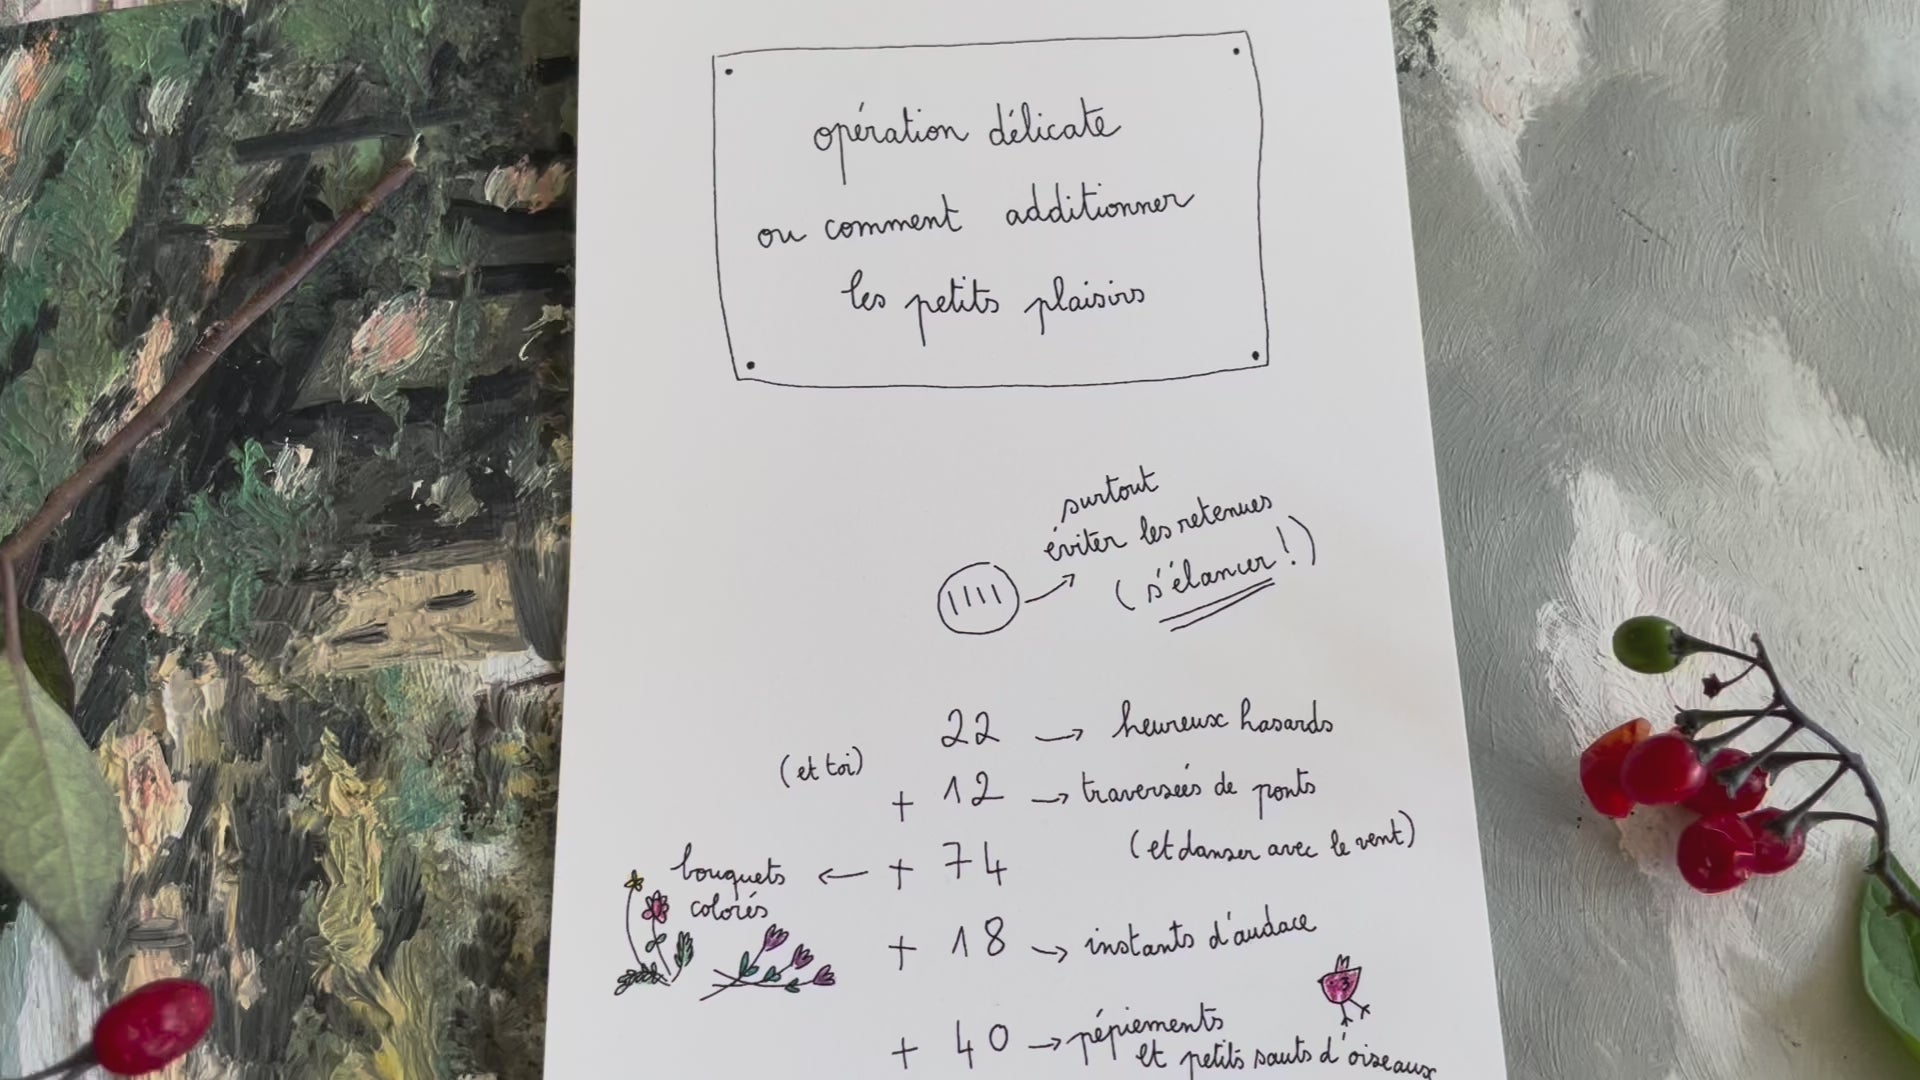 opération délicate
ou comment additionner
les petits plaisirs
surtout
éviter les retenues
(s'élancer!)
22 → heureux hasards
(et toi)
+ 12 → traversées de ponts
(et danser avec le vent)
bouquets ← + 74
colorés
+ 18 → instants d'audace
+ 40 → pépiements
et petits sauts d'oiseaux